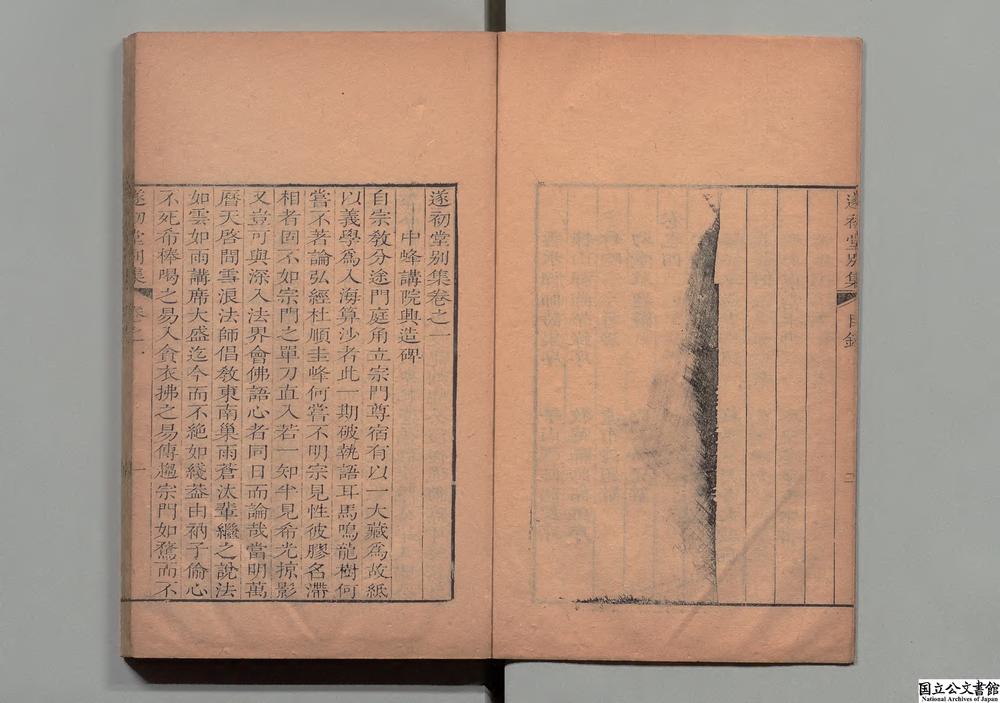 遂初堂別集
目錄
二
遂初堂別集卷之一
中峰講院興造碑
自宗教分途門庭角立宗門尊宿有以一大藏爲故紙
以義學爲入海算沙者此一期破執語耳馬鳴龍樹何
嘗不著論弘經杜順圭峰何嘗不明宗見性彼膠名滯
相者固不如宗門之單刀直入若一知半見希光掠影
又豈可與深入法界會佛語心者同日而論哉當明萬
曆天啓間雪浪法師倡敎東南巢雨蒼汰輩繼之說法
如雲如雨講席大盛迄今而不絕如綫葢由衲子偷心
不死希棒喝之易入貪衣拂之易傳趨宗門如鶩而不
遂初堂別集
卷之一
一
国立公文書館
National Archives of Japan